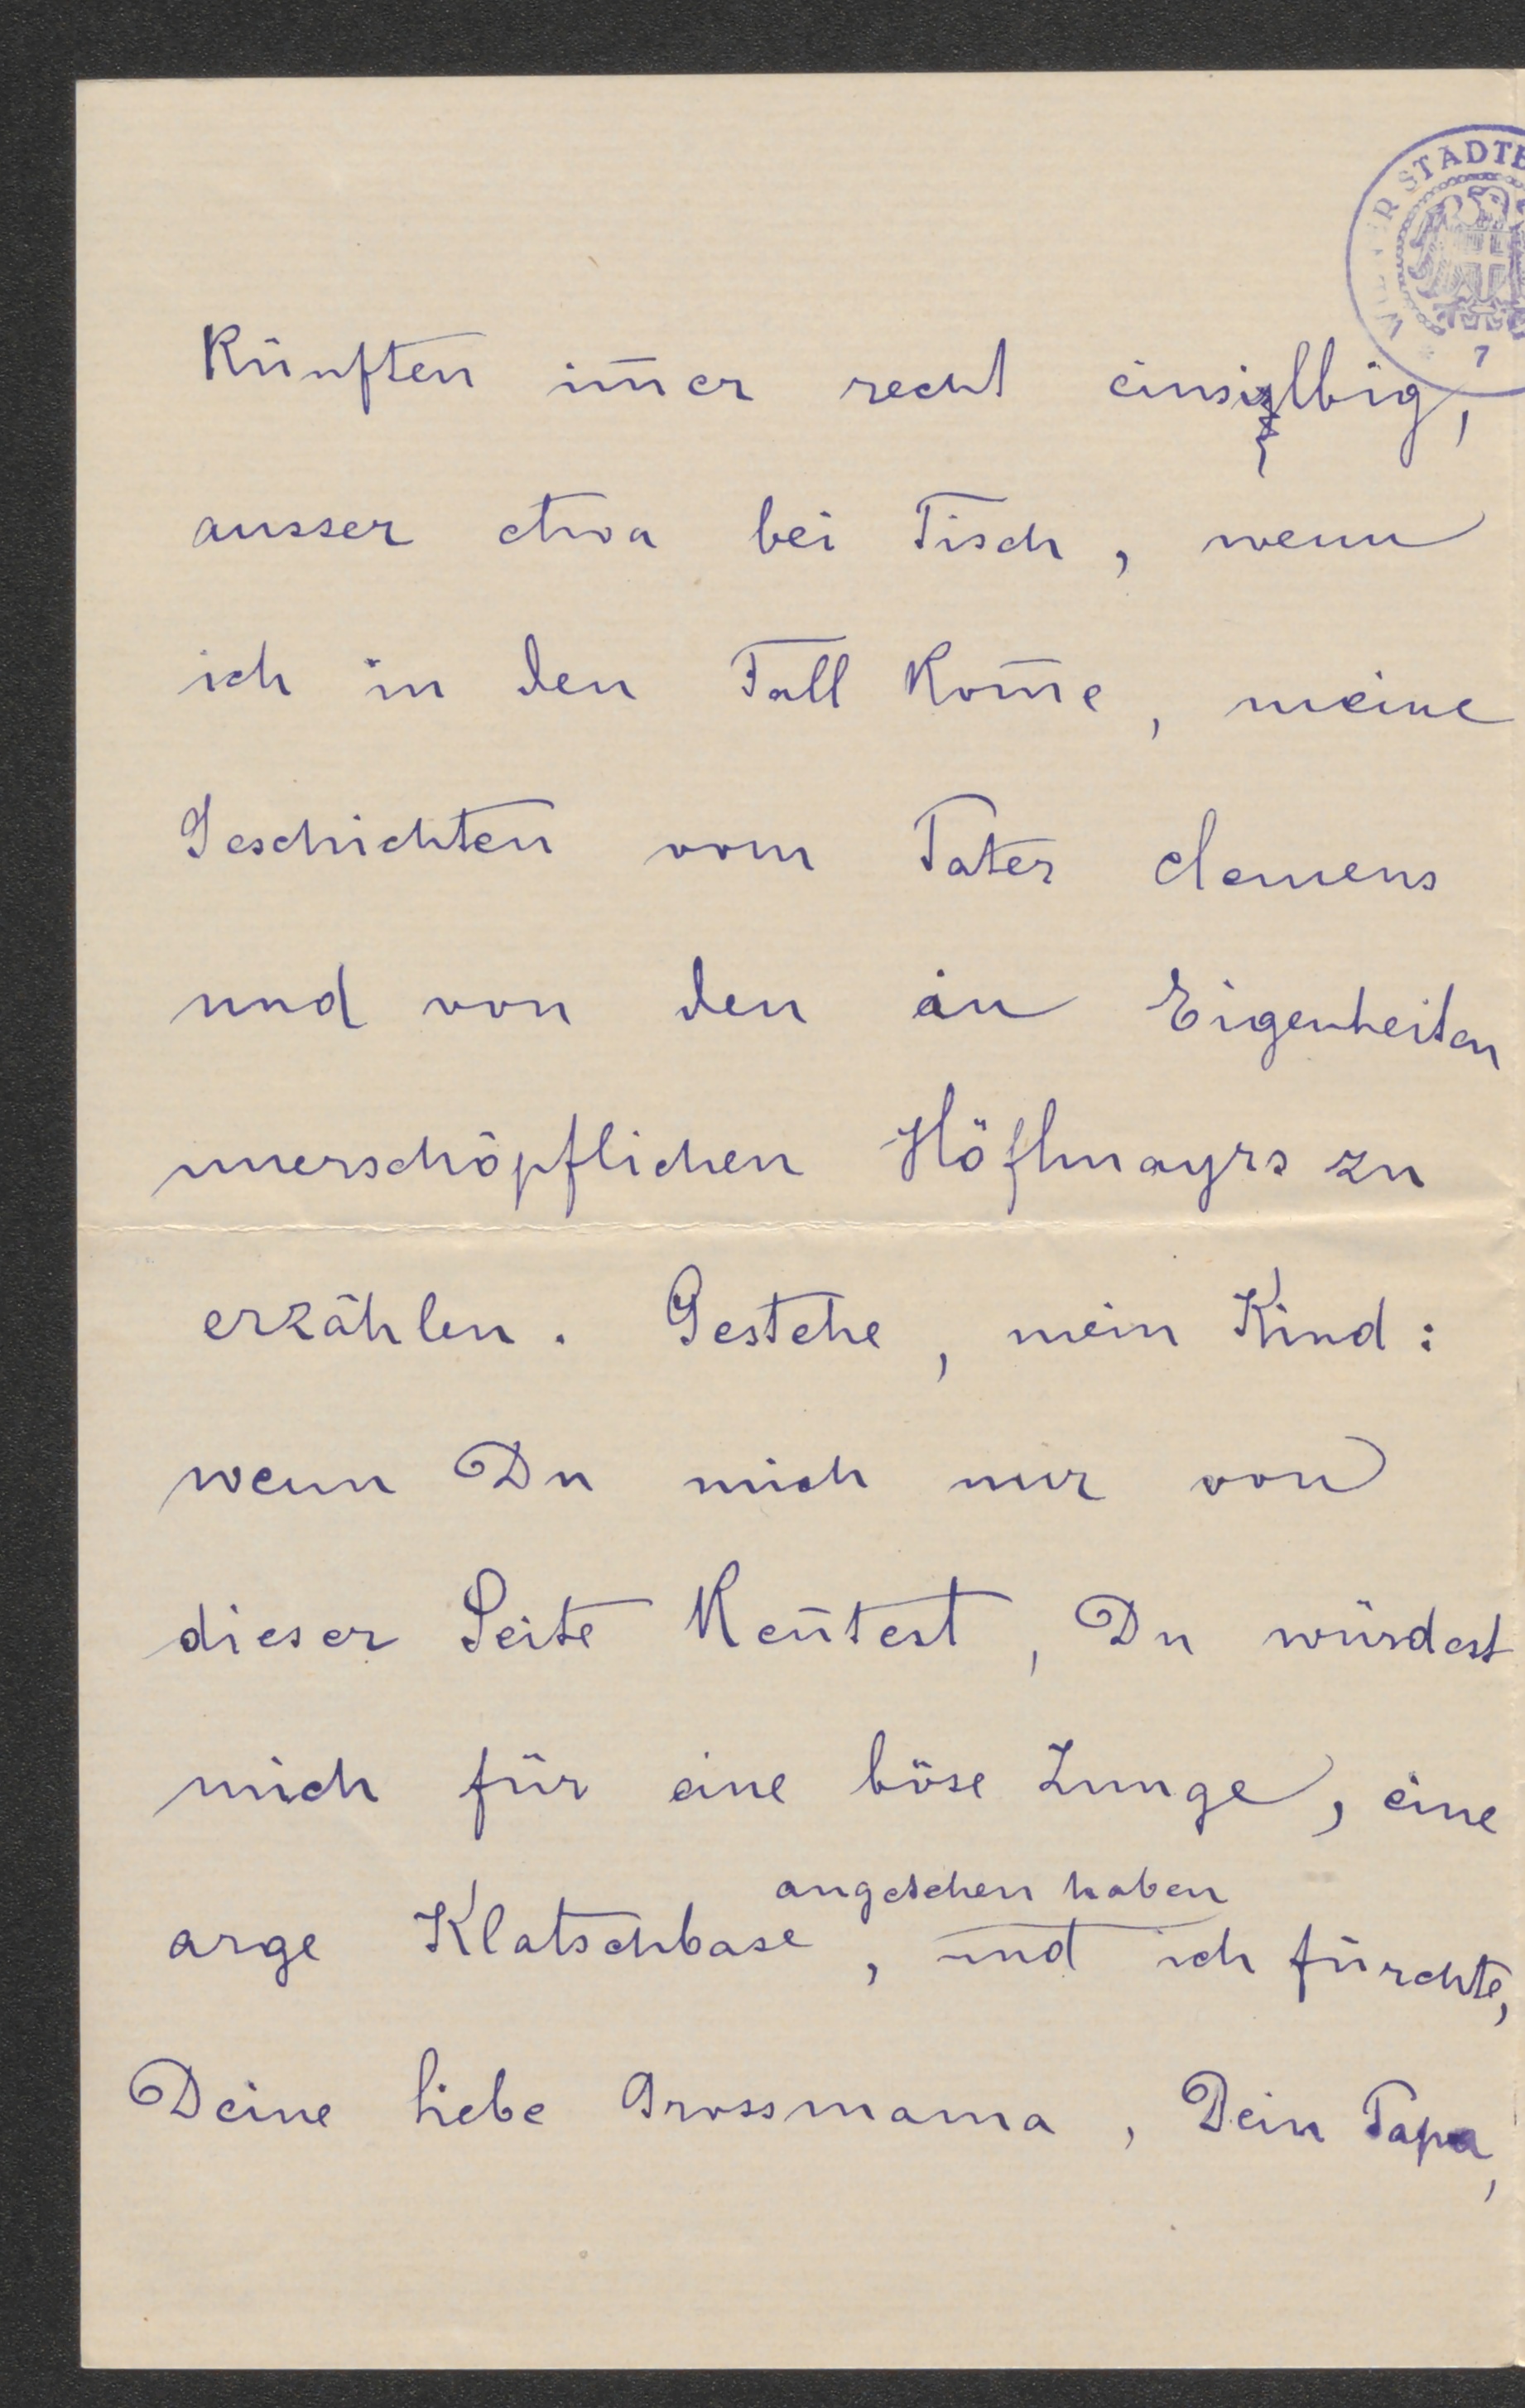 WIENER STADTB
7
künften im̄er recht einsylbig,
ausser etwa bei Tisch, wenn
ich in den Fall kom̄e, meine
Geschichten vom Pater Clemens
und von den an Eigenheiten
unerschöpflichen Höflmayrs zu
erzählen. Gestehe, mein Kind:
wenn Du mich nur von
dieser Seite ken̄test, Du würdest
mich für eine böse Zunge, eine
angesehen haben
arge Klatschbase, und ich fürchte,
Deine liebe Grossmama, Dein Papa,